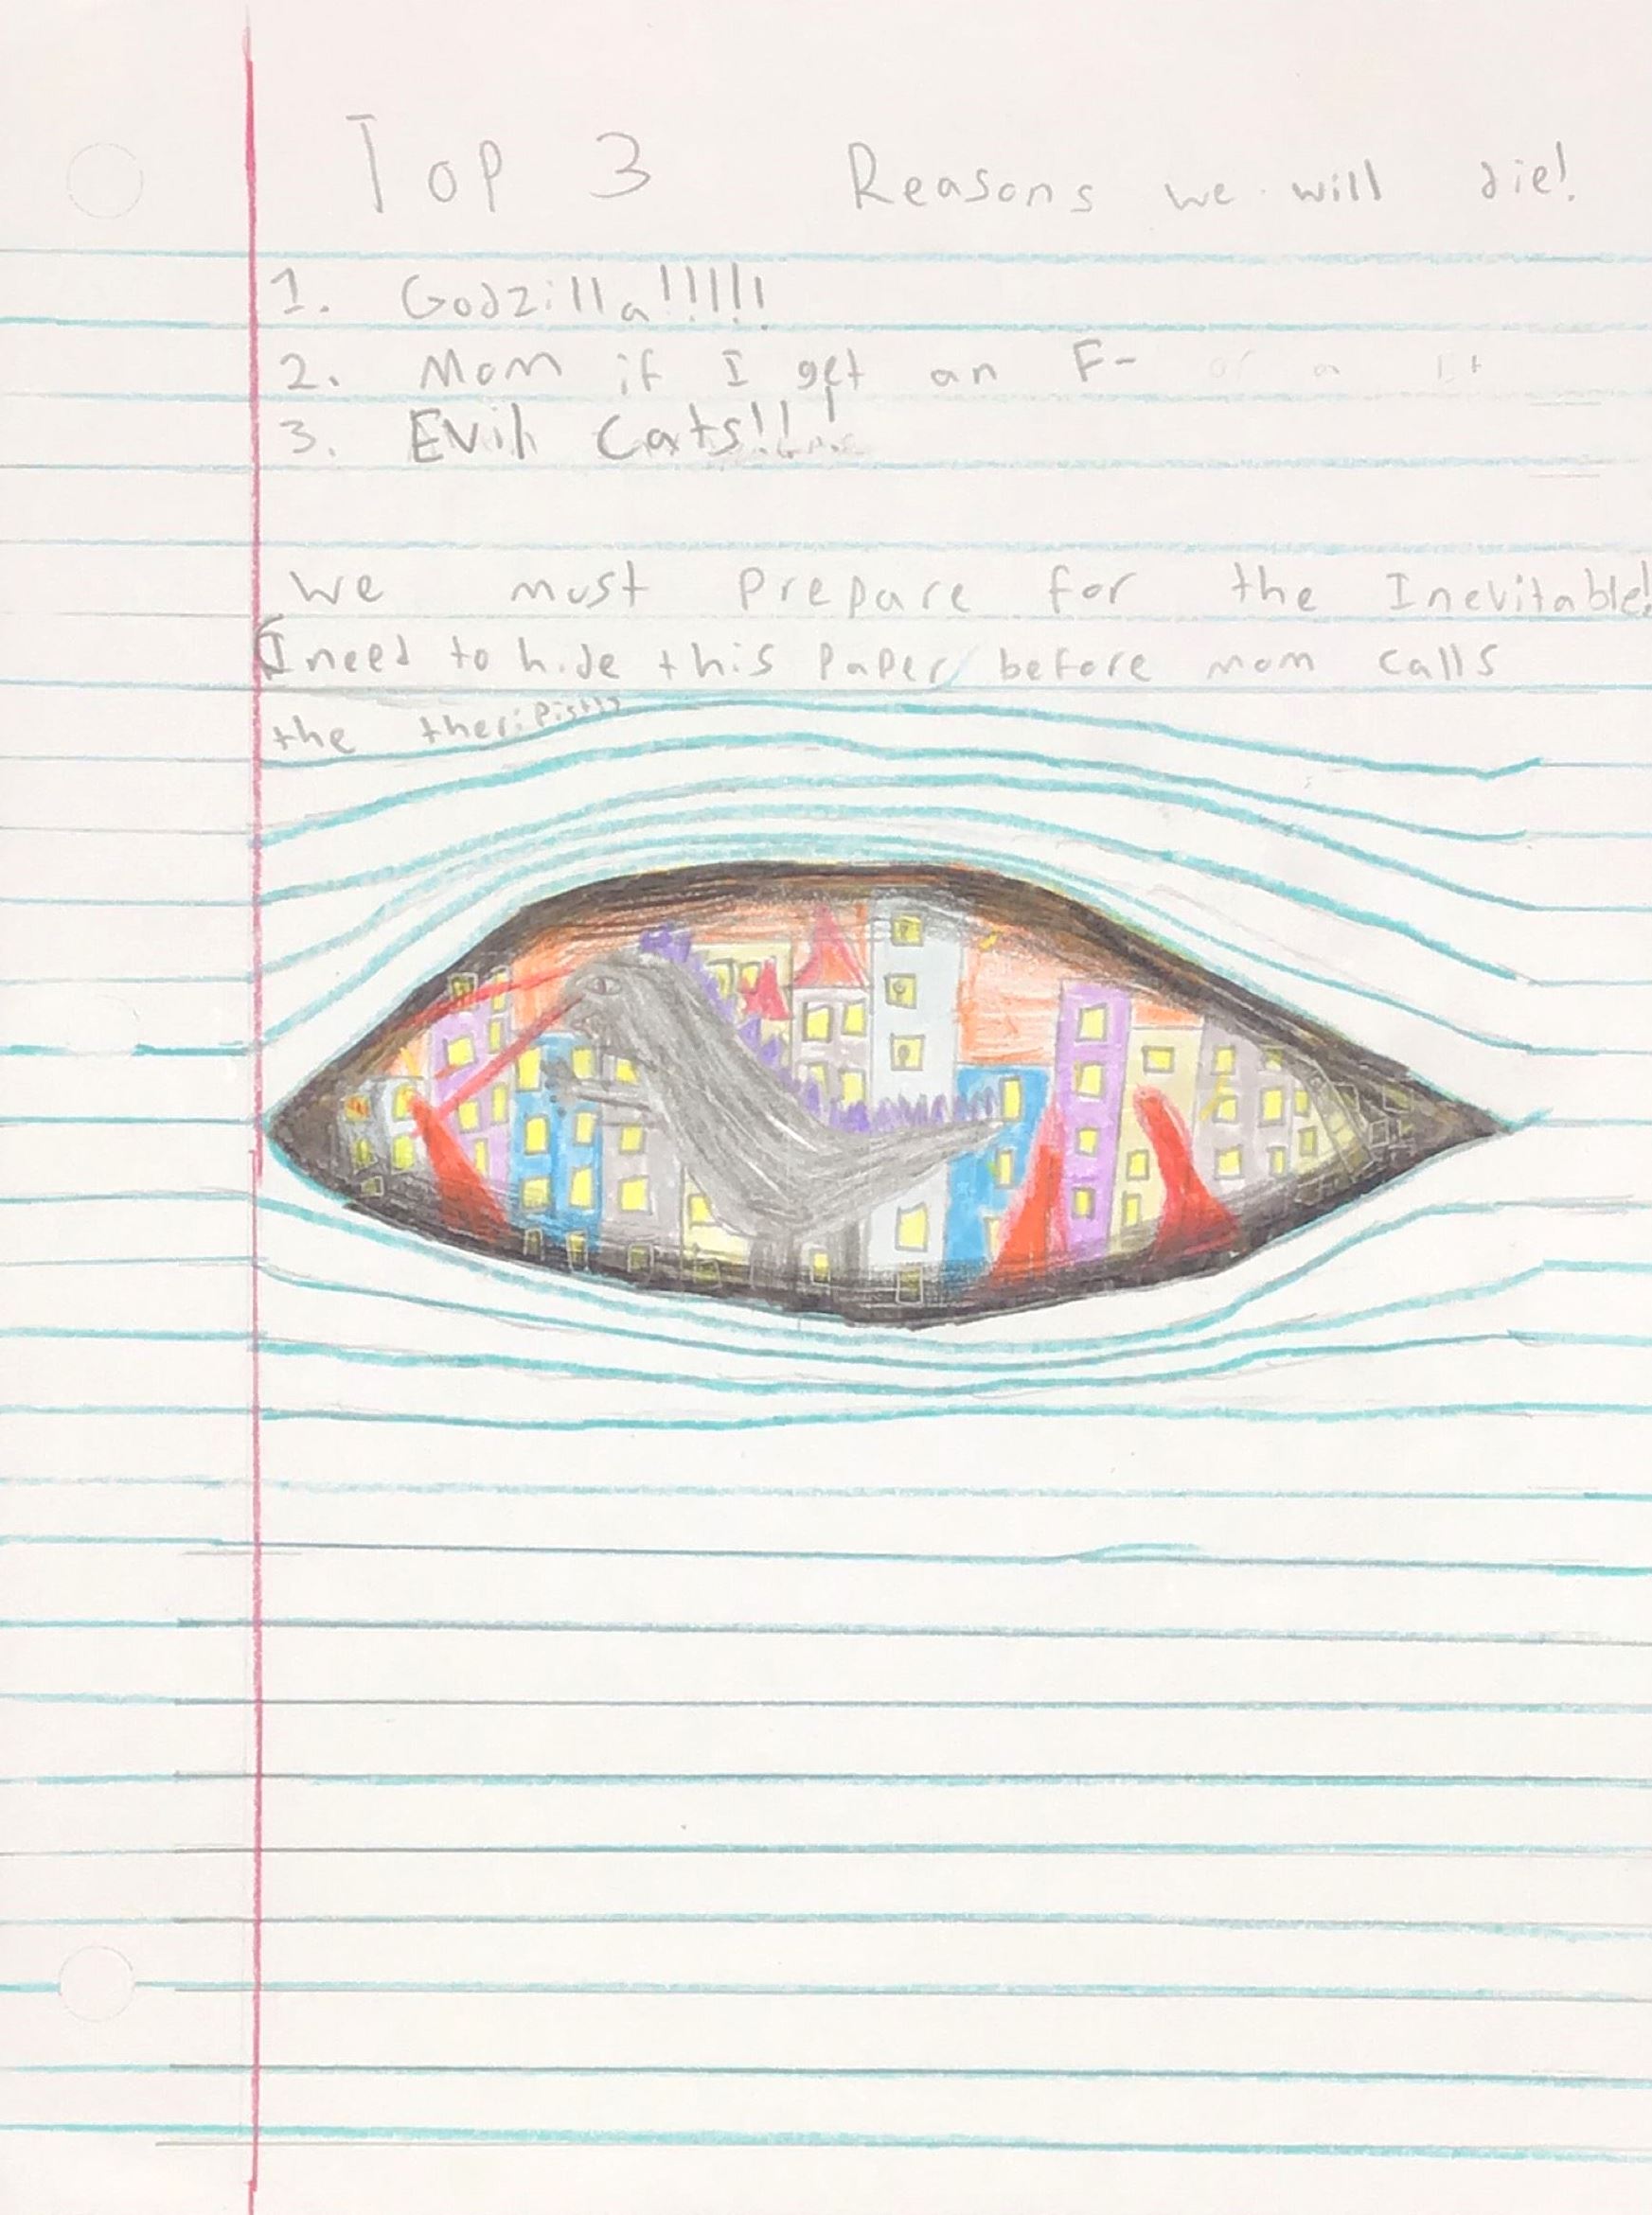 Top 3 Reasons we will die!
1. Godzilla!!!!!
2. Mom if I get an F-
3. Evil Cats!!!
We must prepare for the Inevitable!
(I need to hide this paper before mom calls
the theripist))